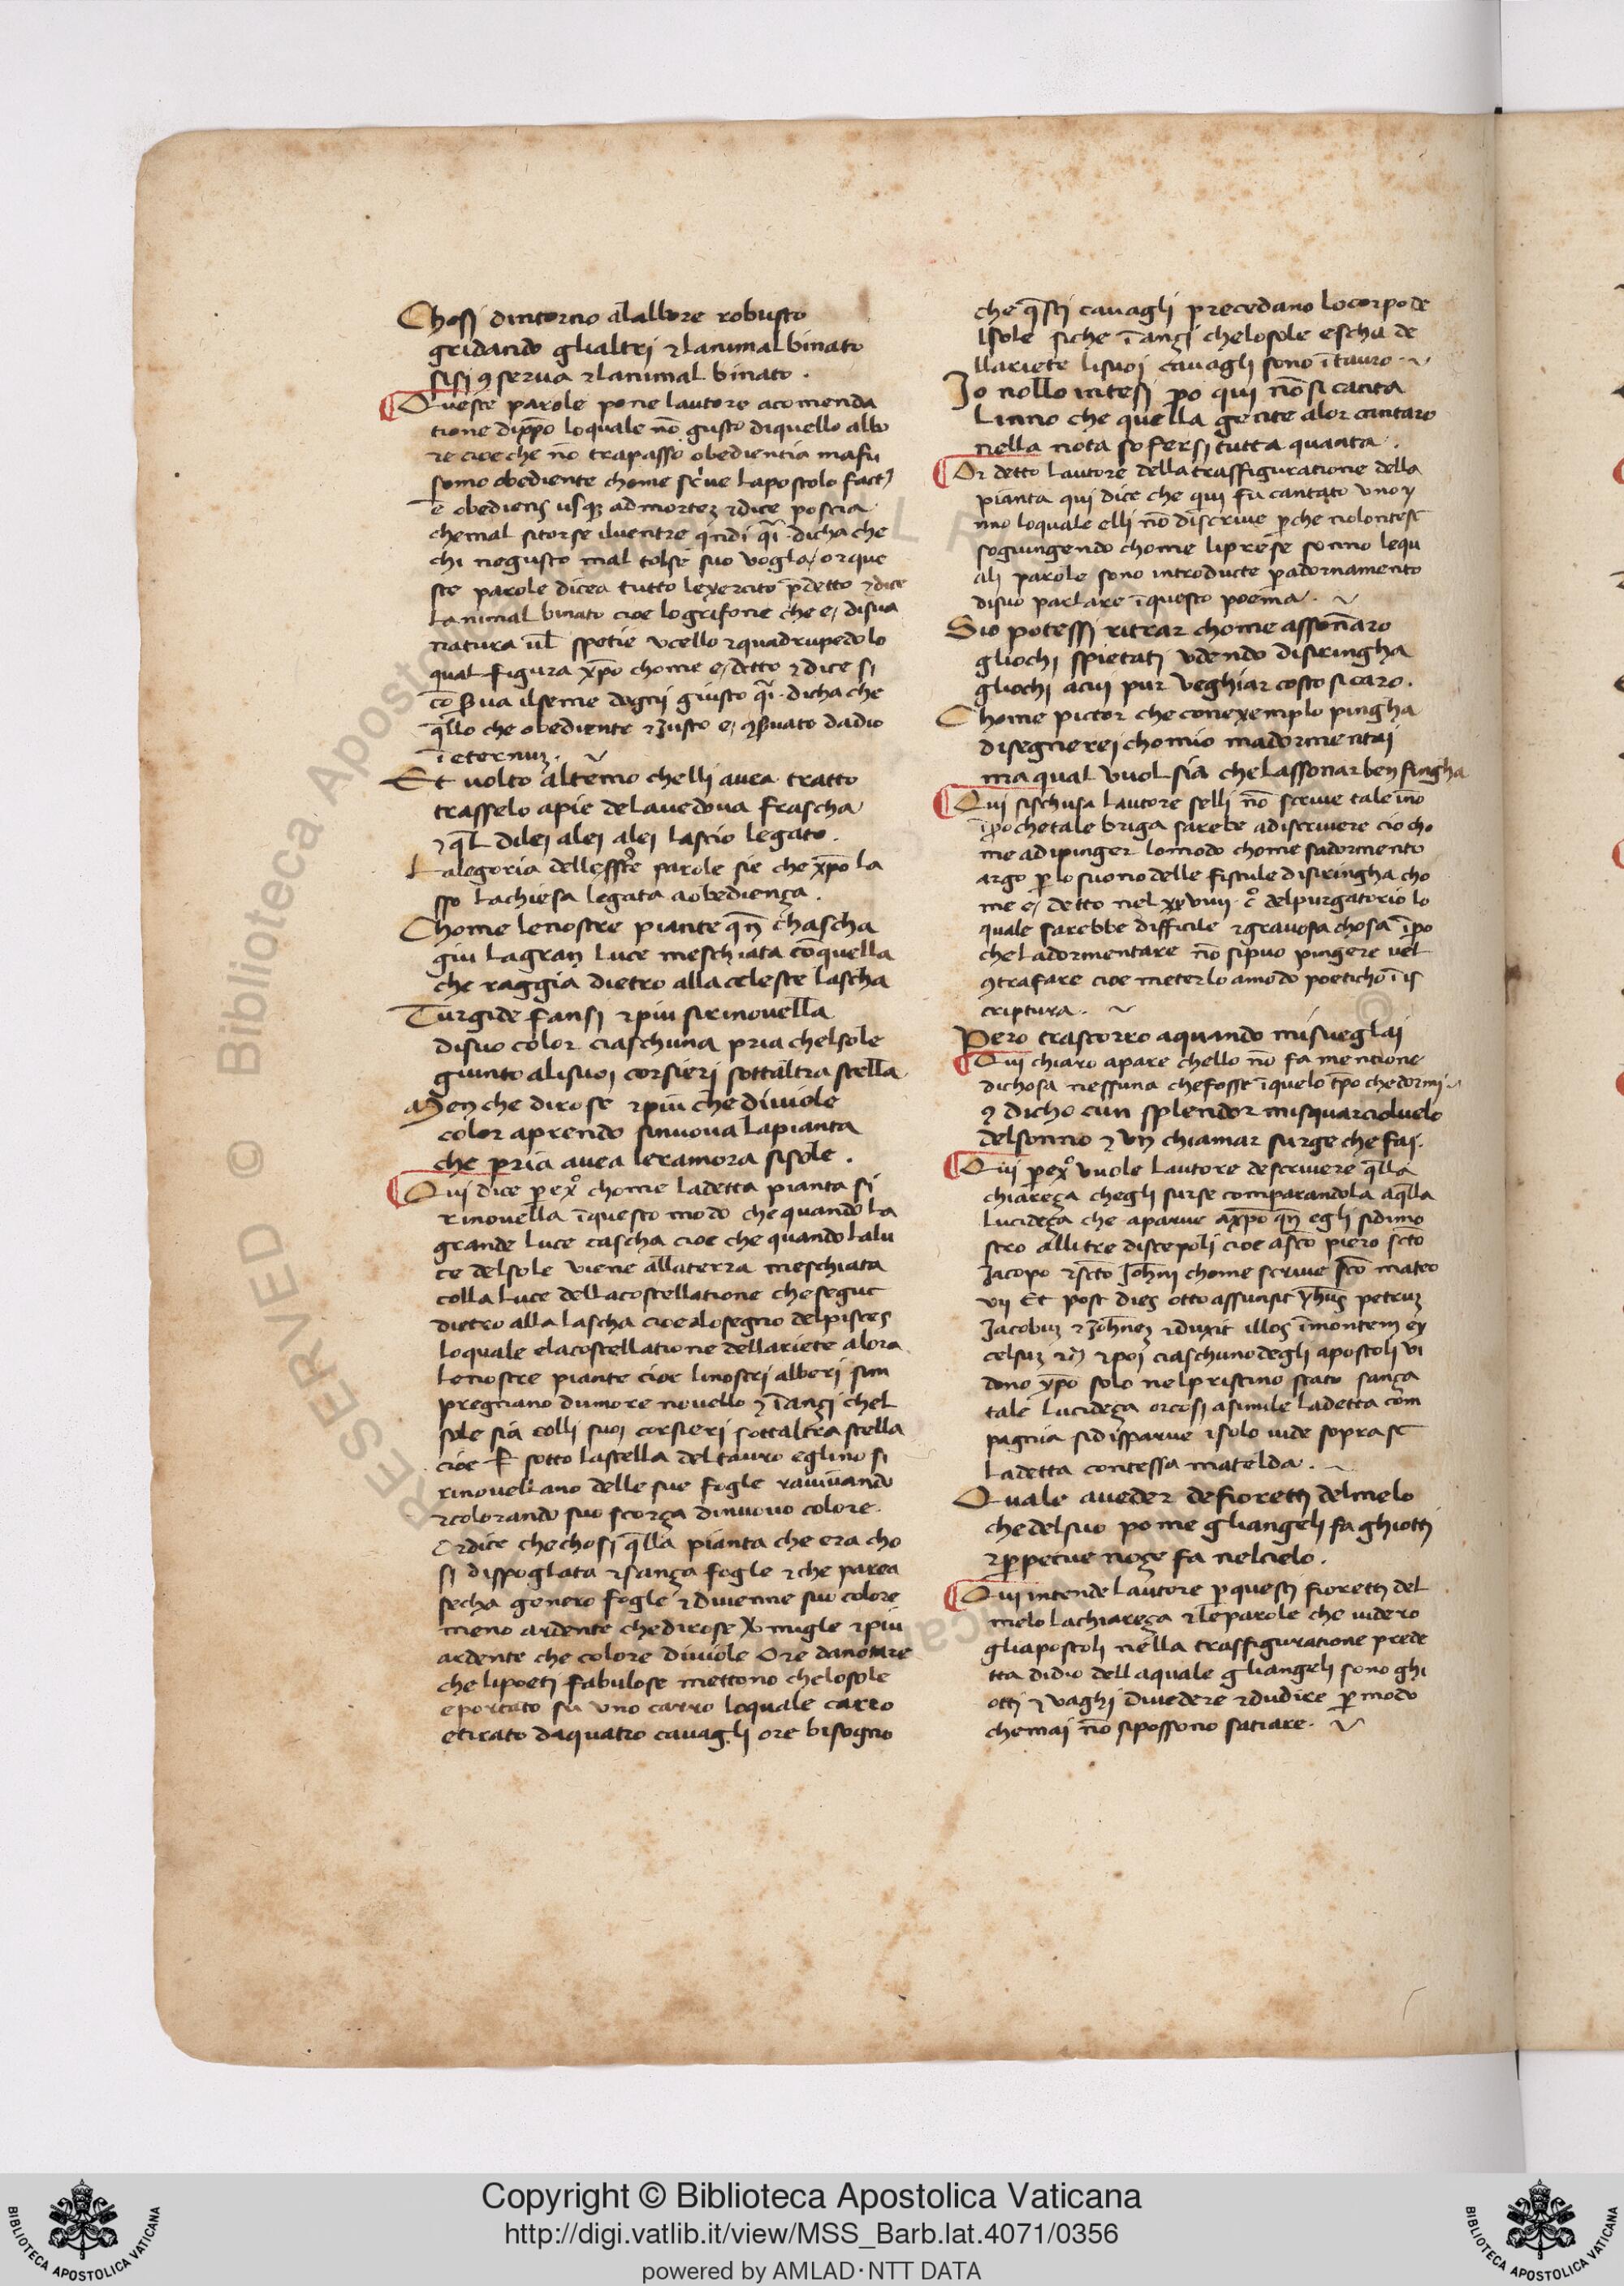 Chosi dintorno alalbore robusto
gridando glialtri ⁊ lanimal binato
sisi ꝯserua ⁊ lanimal binato .
Queste parole pone lautore acomenda
tione dix̄po loquale nō gusto diquello albo
re cioe che nō trapasso obedientia mafu
somo obediente chome sc'ue lapostolo fact9
ē obediens usqꝫ ad mortez ⁊dice poscia
chemal sitorse iluentre q̄ndi q̄i dicha che
chi negusto mal tolse suo voglo / or que
ste parole dicea tutto lexercito p̄detto ⁊dice
lanimal binato cioe logrifone che e / disua
natura ūl spetie vcello ⁊quadrupedo lo
qual figura xp̄o chome e / detto ⁊ dice si
cōserua ilseme dogni giusto q̄i dicha che
q̄llo che obediente ⁊ Justo e / ꝯseruato dadio
ī eternuz .
Et uolto altemo chelli auea tratto
trasselo apie delauedoua frascha
⁊ q̄l dilei alei alei lascio legato .
Lalegoria parole sie che xp̄o la
sso lachiesa legata aobediença .
Chome lenostre piante qn̄ chascha
giu lagran luce meschiata cōquella
che raggia dietro alla celeste lascha
Turgide fansi ⁊piu sirinouella
disuo color ciaschuna pria chelsole
giunto alisuoi corsieri sottaltra stella
Men che dirose ⁊piu che diuiole
color aprendo sinuoua lapianta
che pria auea leramora sisole .
Qui dice p exº chome ladetta pianta si
rinouella īquesto modo che quando la
grande luce cascha cioe che quando lalu
ce delsole viene allaterra meschiata
colla luce dellacostellatione chesegue
dietro alla lascha cioe alosegno delpisces
loquale elacostellatione dellariete alora
lenostre piante cioe linostri alberi sim
pregnano dumore nouello ⁊ īançi chel
sole sia colli suoi corsieri sottaltra stella
cioe sotto lastella deltauro eglino si
rinouellano delle sue fogle rauiuando
⁊colorando suo scorça dinuouo colore.
Ordice chechosi q̄lla pianta che era cho
si dispoglata ⁊sança fogle ⁊ che parea
secha genero fogle ⁊ diuenne suo colore
meno ardente chedirose x̄o migle ⁊ piu
ardente che colore diuiole Ore danotare
che lipoeti fabulose mettono chelosole
eportato su uno carro loquale carro
etirato daquatro cauagli ore bisogno
che q̄sti cauagli precedano locorpo de
lsole siche īançi chelosole escha de
llariete lisuoi cauagli sono ī tauro
Jo nollo intesi po qui nō si canta
linno che quella gente alor cantaro
nella nota sofersi tutta quanta .
Or detto lautore della trasffiguratione della
pianta qui dice che qui fu cantato vno y
nno loquale elli nō discriue p̄che nolontese
sogiungendo chome liprese sonno lequ
ali parole sono introducte padornamento
disuo parlare īquesto poema .
Sio potessi ritrar chome assonnaro
gliochi spietati vdendo disiringha
gliochi acui pur veghiar costo si caro .
Chome pictor che conexemplo pingha
disegnerei chomio madormentai
ma qual vuol sia che lassonar ben fingha
Qui sischusa lautore selli nō scriue tale īno
īpo chetale briga sarebe adiscriuere cio cho
me adipinger lomodo chome sadormento
argo p lo suono delle fistule disiringha cho
me e / detto nel xxviiii cº delpurgatorio lo
quale sarebbe difficile ⁊grauosa chosa īpo
che ladormentare nō sipuo pingere uel
ꝯtrafare cioe meterlo amodo poetichoīis
criptura .
Pero trascorro aquando misueglai
Qui chiaro apare chello nō fa mentione
dichosa nessuna chefosse īquelo tp̄o chedormi
⁊ dicho cun splendor misquarcioluelo
delsonno ⁊ vn chiamar surge che fai .
Qui p exº vuole lautore descriuere q̄lla
chiareça chegli surse comparandola aq̄lla
lucideça che aparue axp̄o qn̄ egli sidimo
stro allitre discepoli cioe ascō piero scto
Jacopo ⁊scto Johni chome scriue sco mateo
vij Et post dies otto assunsit yhus petruz
Jacobuz ⁊ Johnez ⁊duxit illos īmontem ex
celsuz ⁊c ⁊poi ciaschunodegli apostoli vi
dono xp̄o solo nelpristino stato sança
tale lucideça orcosi asimile ladetta com
pagnia sidisparue ⁊solo uide sopra se
ladetta contessa matelda .
Quale aueder defioretti delmelo
chedelsuo pome gliangeli fa ghiotti
⁊ppetue noçe fa nelcielo .
Qui intende lautore p questi fioretti del
melo lachiareça ⁊le parole che uidero
gliapostoli nella trasffiguratione prede
tta didio dellaquale gliangeli sono ghi
otti ⁊ vaghi diuedere ⁊dudire p modo
chemai nō sipossono satiare .
RESERVED © Biblioteca Apostolica
Copyright © Biblioteca Apostolica Vaticana
http://digi.vatlib.it/view/MSS_Barb.lat.4071/0356
powered by AMLAD·NTT DATA
BIBLIOTECA APOSTOLICA VATICANA
BIBLIOTECA APOSTOLICA VATICANA